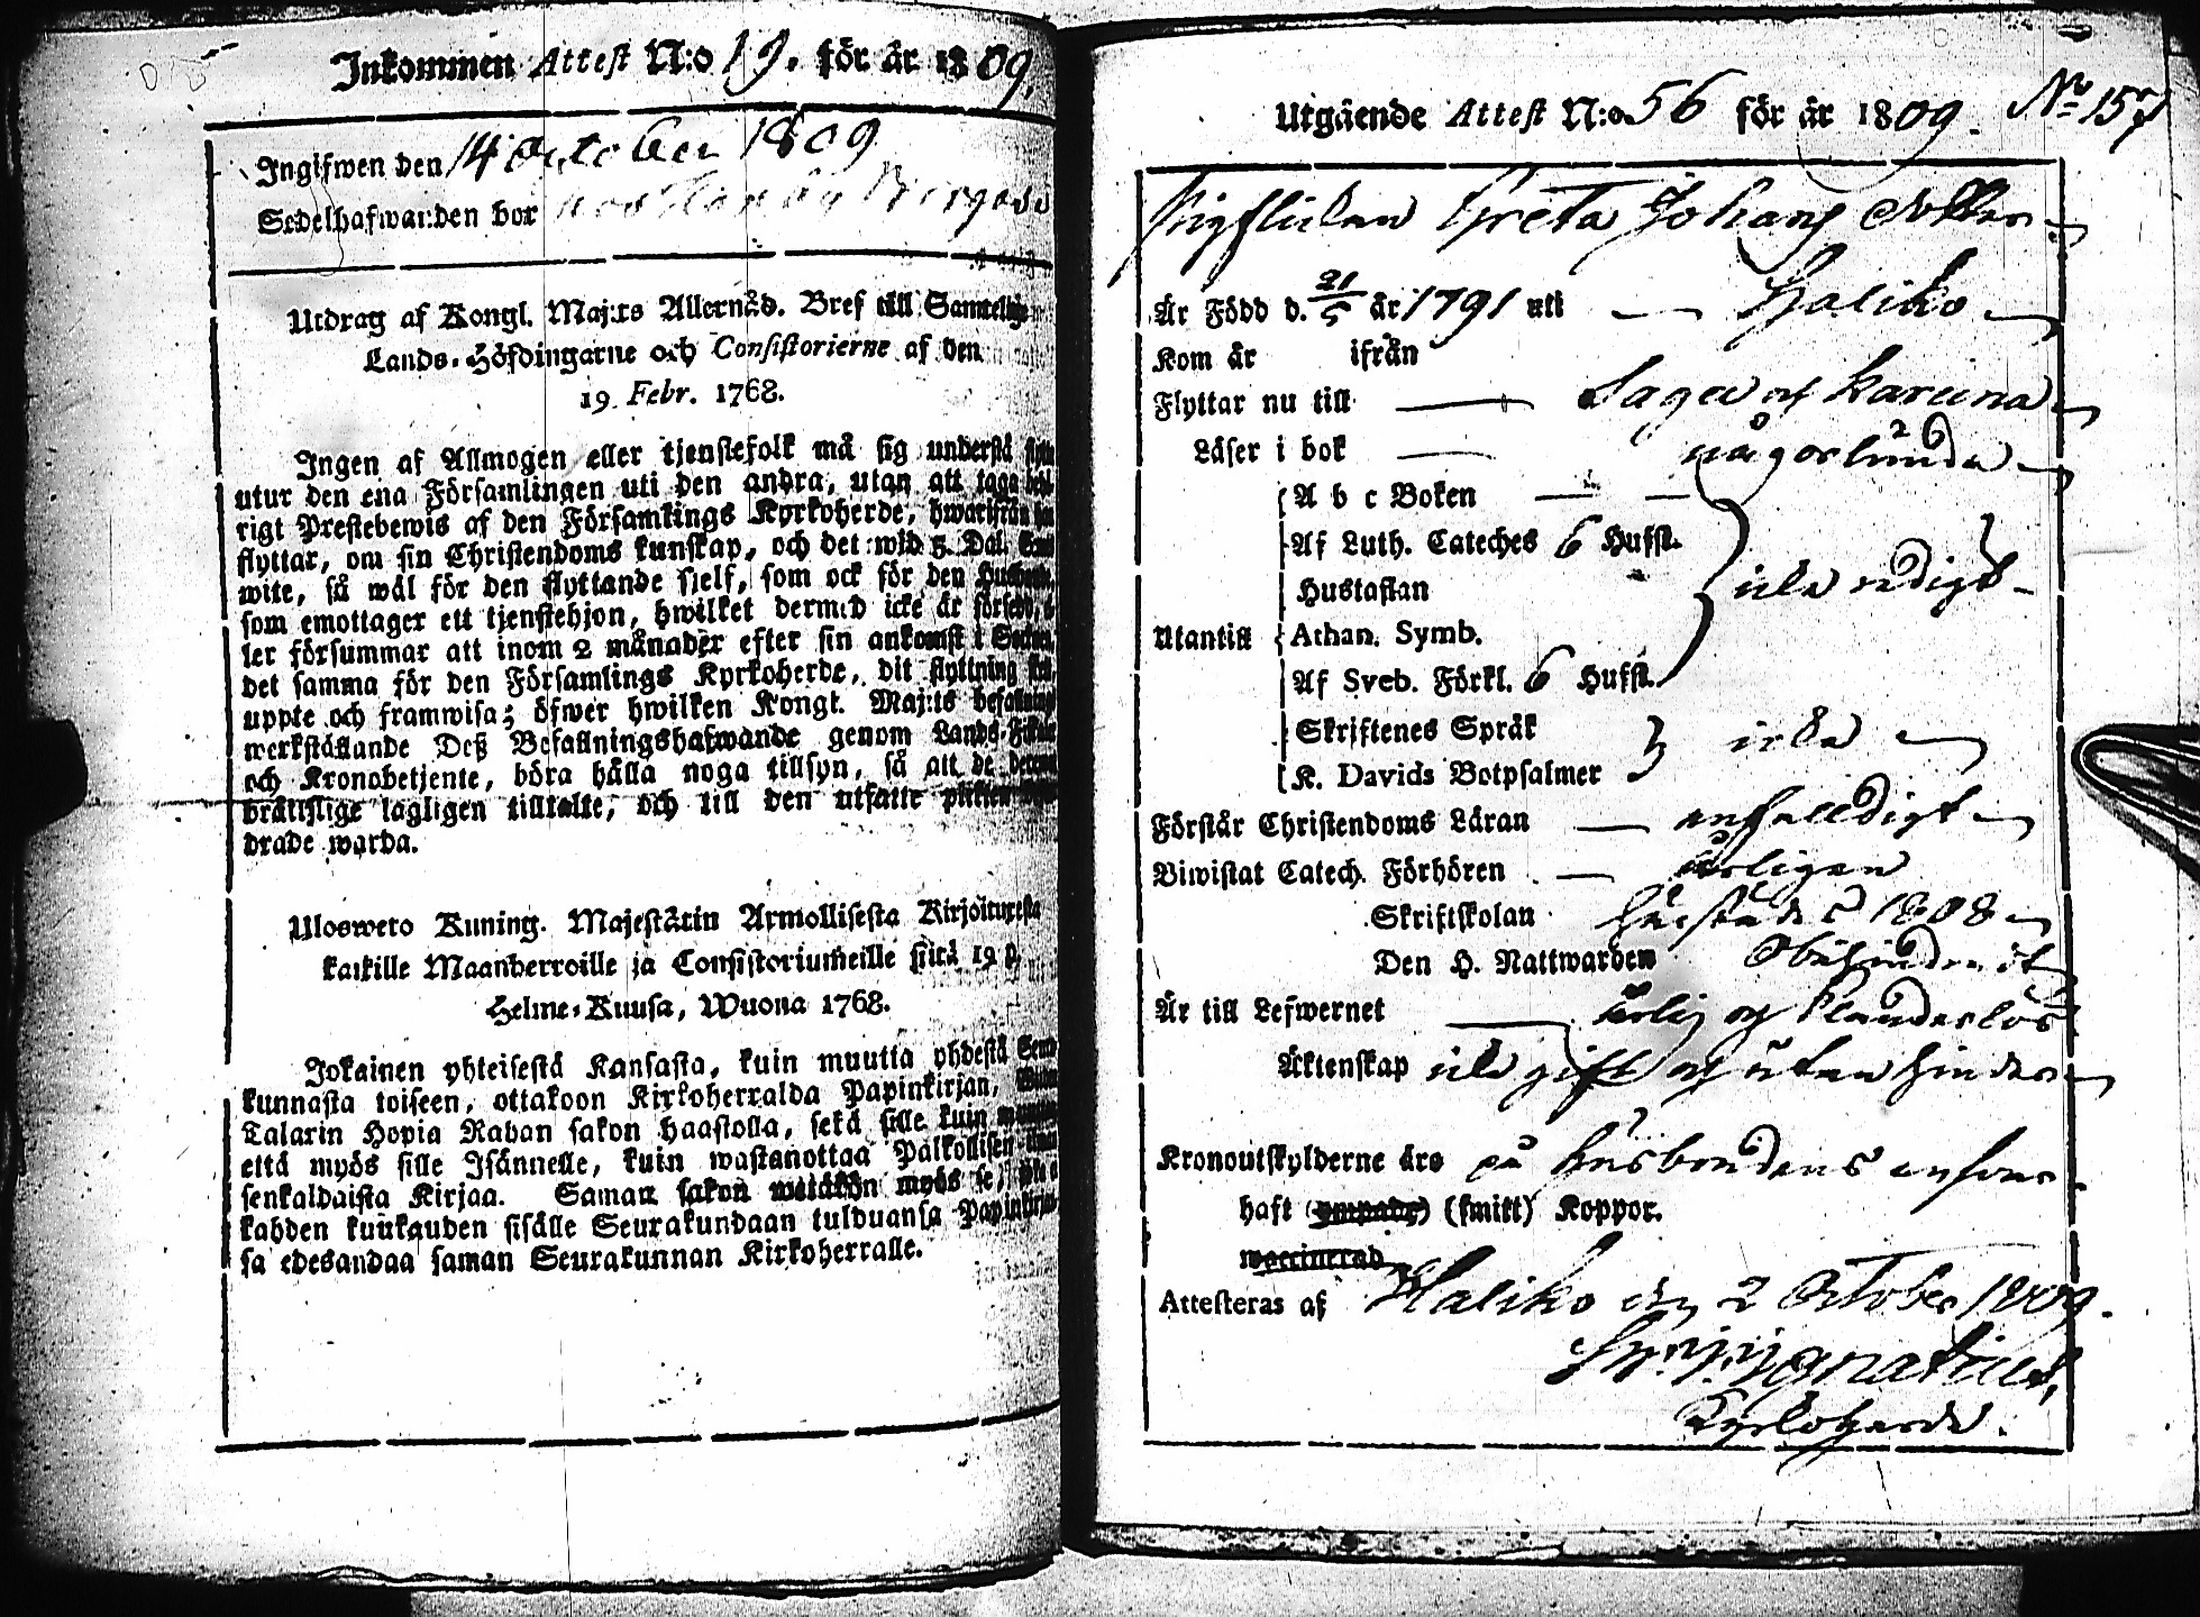 Inkommen Attest N:o 19. för år 1809.
Ingifwen den 14 October 1809
Sedelhafwanden bor hos
Utdrag af Kongl. Maj:ts Allernåd. Bref till Samtelige
Lands-Höfdingarne och Consistorierne af den
19 Febr. 1768.
Ingen af Allmogen eller tjenstefolk må sig understå
utur den ena Församlingen uti den andra, utan att taga behö-
rigt Prestebewis af den Församlings Kyrkoherde, hwarifrån han
flyttar, om sin Christendoms kunskap, och det wid 5. Dal. Smt
wite, så wäl för den flyttande sjelf, som ock för den Husbonde,
som emottager ett tjenstehjon, hwilket dermed icke är försedt,
ler försummar att inom 2 månader efter sin ankomst i Socknen,
det samma för den Församlings Kyrkoherde, dit flyttning skett,
uppte och framwisa; öfwer hwilken Kongl. Maj:ts befallning
werkställande Deß Befallningshafwande genom Lands-Fiskaler
och Kronobetjente, böra hålla noga tillsyn, så att de deremot
bråttslige lagligen tilltalte, och till den utsatte plikten
drade warda.
Ulosweto Kuning. Majestätin Armollisesta Kirjoituxesta
kaikille Maanherroille ja Consistoriumeille siitä 19 p.
Helme-Kuusa, Wuona 1768.
Jokainen yhteisestä Kansasta, kuin muutta yhdestä Seura-
kunnasta toiseen, ottakoon Kirkoherralda Papinkirjan,
Talarin Hopia Rahan sakon haastolla, sekä sille kuin muutta
että myös sille Isännelle, kuin wastanottaa Palkollisen
senkaldaista Kirjaa. Saman sakon wetäkön myös se, joka ei
kahden kuukauden sisälle Seurakundaan tulduansa Papinkirjaan-
sa edesandaa saman Seurakunnan Kirkoherralle.
Utgående Attest N:o 56 för år 1809. No 157
Pigflickan Greta Johans dotter
Är Född d. 21/5 år 1791 uti — Haliko
Kom år ifrån
Flyttar nu till — Sagu och Karuna
Läser i bok — någorlunda
A b c Boken —
Af Luth. Cateches 6 Hufst.
Hustaflan
Utantill Athan. Symb.
Af Sveb. Förkl. 6 Hufst.
Skriftenes Språk
K. Davids Botpsalmer
Förstår Christendoms Läran — enfaldigt
Biwistat Catech. Förhören — årligen
Skriftskolan härstädes 1808
Den H. Nattwarden Obehindrat
Är till Lefwernet — ärlig och klanderlös
Äktenskap icke gift och utan hinder
Kronoutskylderne äro på husbondens answar
haft (ympade) (smitt) Koppor.
waccinerad
Attesteras af Haliko den 2 October 1809.
Ignatius,
Kyrkoherde.